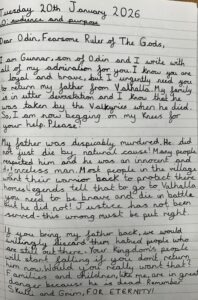 Tuesday 20th January 2026
LO: audience and purpose
Dear Odin, Fearsome Ruler of The Gods,
I am Gunnar, son of Odin and I write with
all of my admiration for you. I know you are
loyal and brave, but I urgently need you
to return my father from Valhalla. My family
is in utter devastation and I know that he
was taken by the Valkyries when he died.
So, I am now begging on my knees for
your help. Please!
My father was despicably murdered. He did
not just die by natural cause! Many people
respected him and he was an innocent and
defenceless man. Most people in the village
want their warrior back to protect their
homes. Legends tell that to go to Valhalla
you need to be brave and die in battle
but he did not! Justice has not been
served - this wrong must be put right.
If you bring my father back, we would
willingly discard them hatred people who
are still out there. Your kingdom's people
will start falling if you dont return
him now. Would you really want that?
Families and children, like me, are in great
danger because he is dead. Remember
Skull and Grim, FOR ETERNITY!